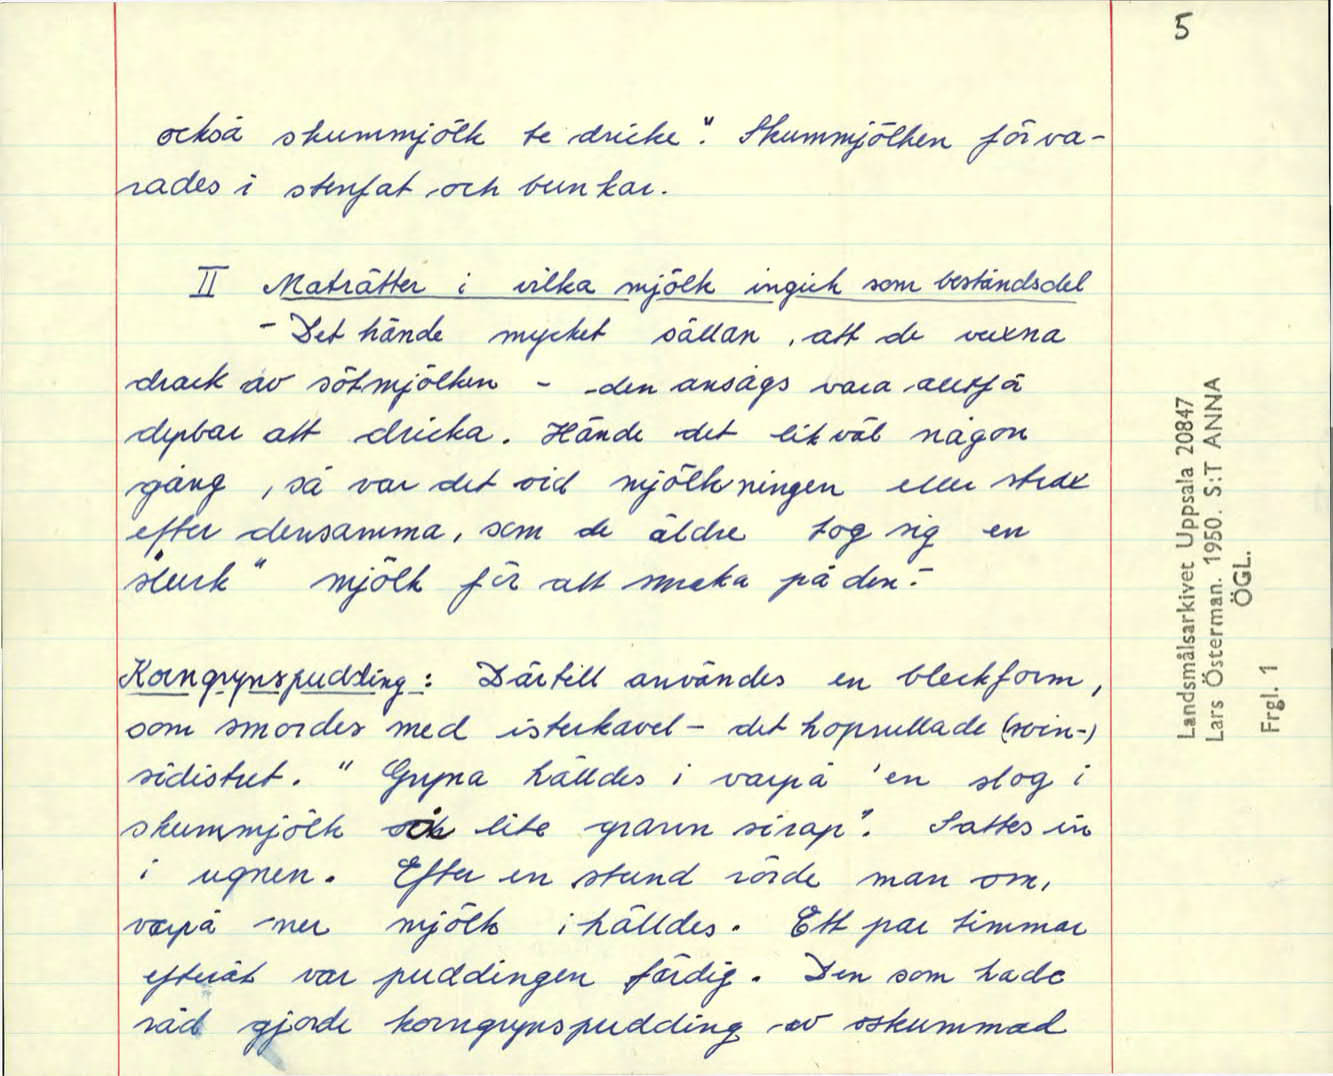 5
också skummjölk te dricke". Skummjölken förva-
rades i stenfat och bunkar.
II Maträtter i vilka mjölk ingick som beståndsdel
- Det hände mycket sällan, att de vuxna
drack av sötmjölken - den ansågs vara alltför
dyrbar att dricka. Hände det likväl någon
gång, så var det vid mjölkningen eller strax
efter densamma, som de äldre tog sig en
"slurk" mjölk för att smaka på den.-
Korngrynspudding: Därtill användes en bleckform,
som smordes med isterkavel - det hoprullade (svin-)
sidistret. " Gryna hälldes i varpå 'en slog i
skummjölk och lite grann sirap". Sattes in
i ugnen. Efter en stund rörde man om,
varpå mer mjölk ihälldes. Ett par timmar
efteråt var puddingen färdig. Den som hade
råd gjorde korngrynspudding av oskummad
Landsmålsarkivet Uppsala 20847
Lars Österman. 1950. S:T ANNA
ÖGL.
Frgl. 1